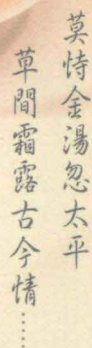 莫恃金湯忽太平
草間霜露古今情……